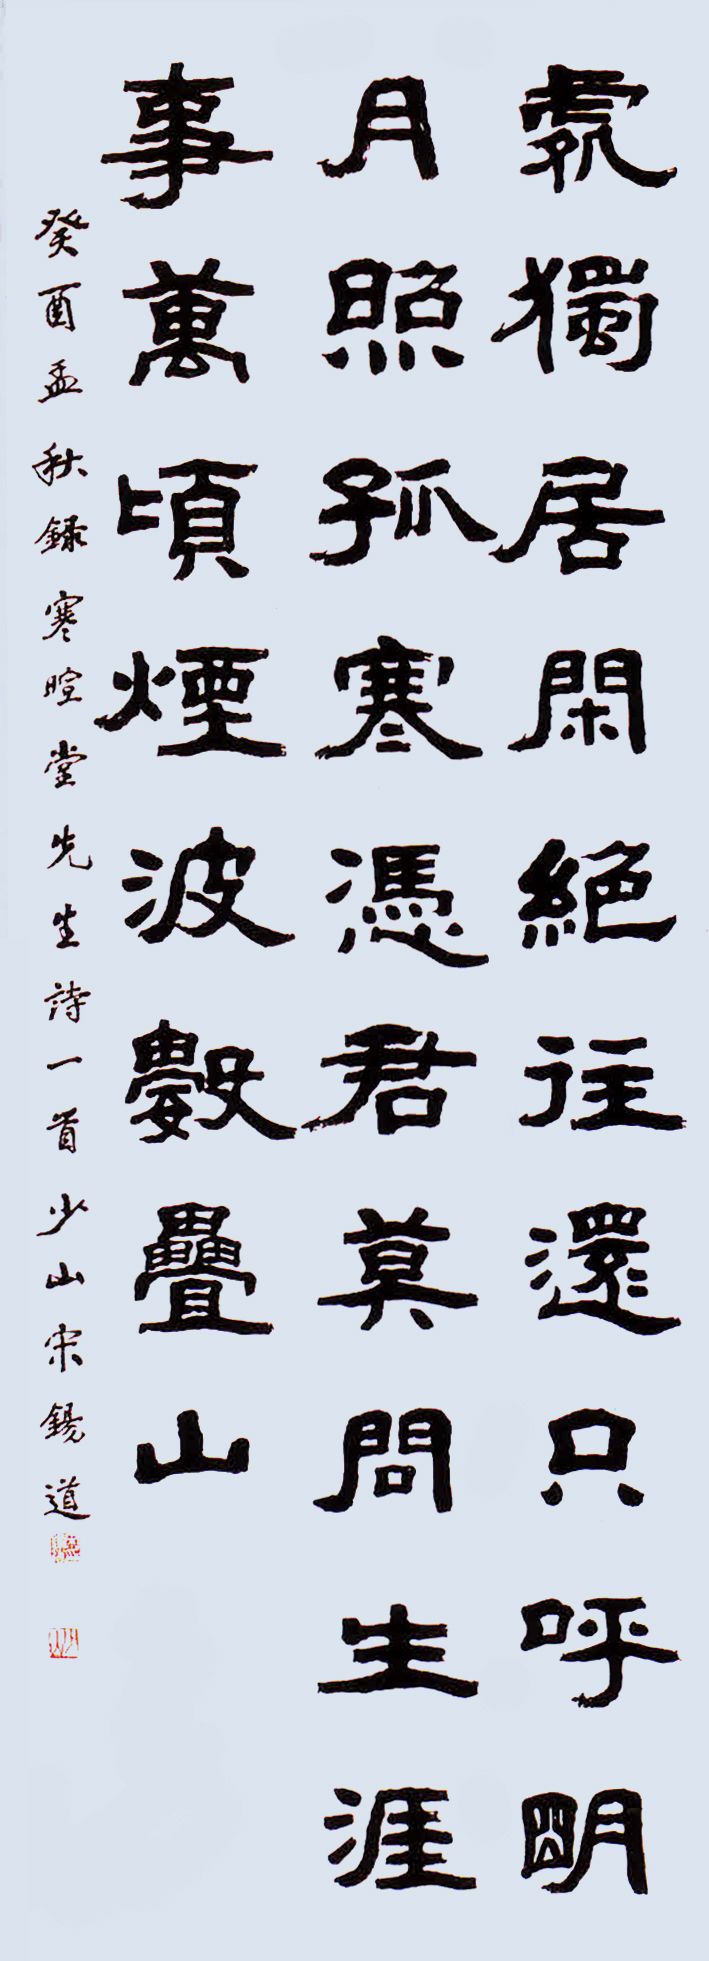 處獨居閑絕往還只呼明
月照孤寒憑君莫問生涯
事萬頃煙波數疊山
癸酉孟秋錄寒暄堂先生詩一首少山宋錫道